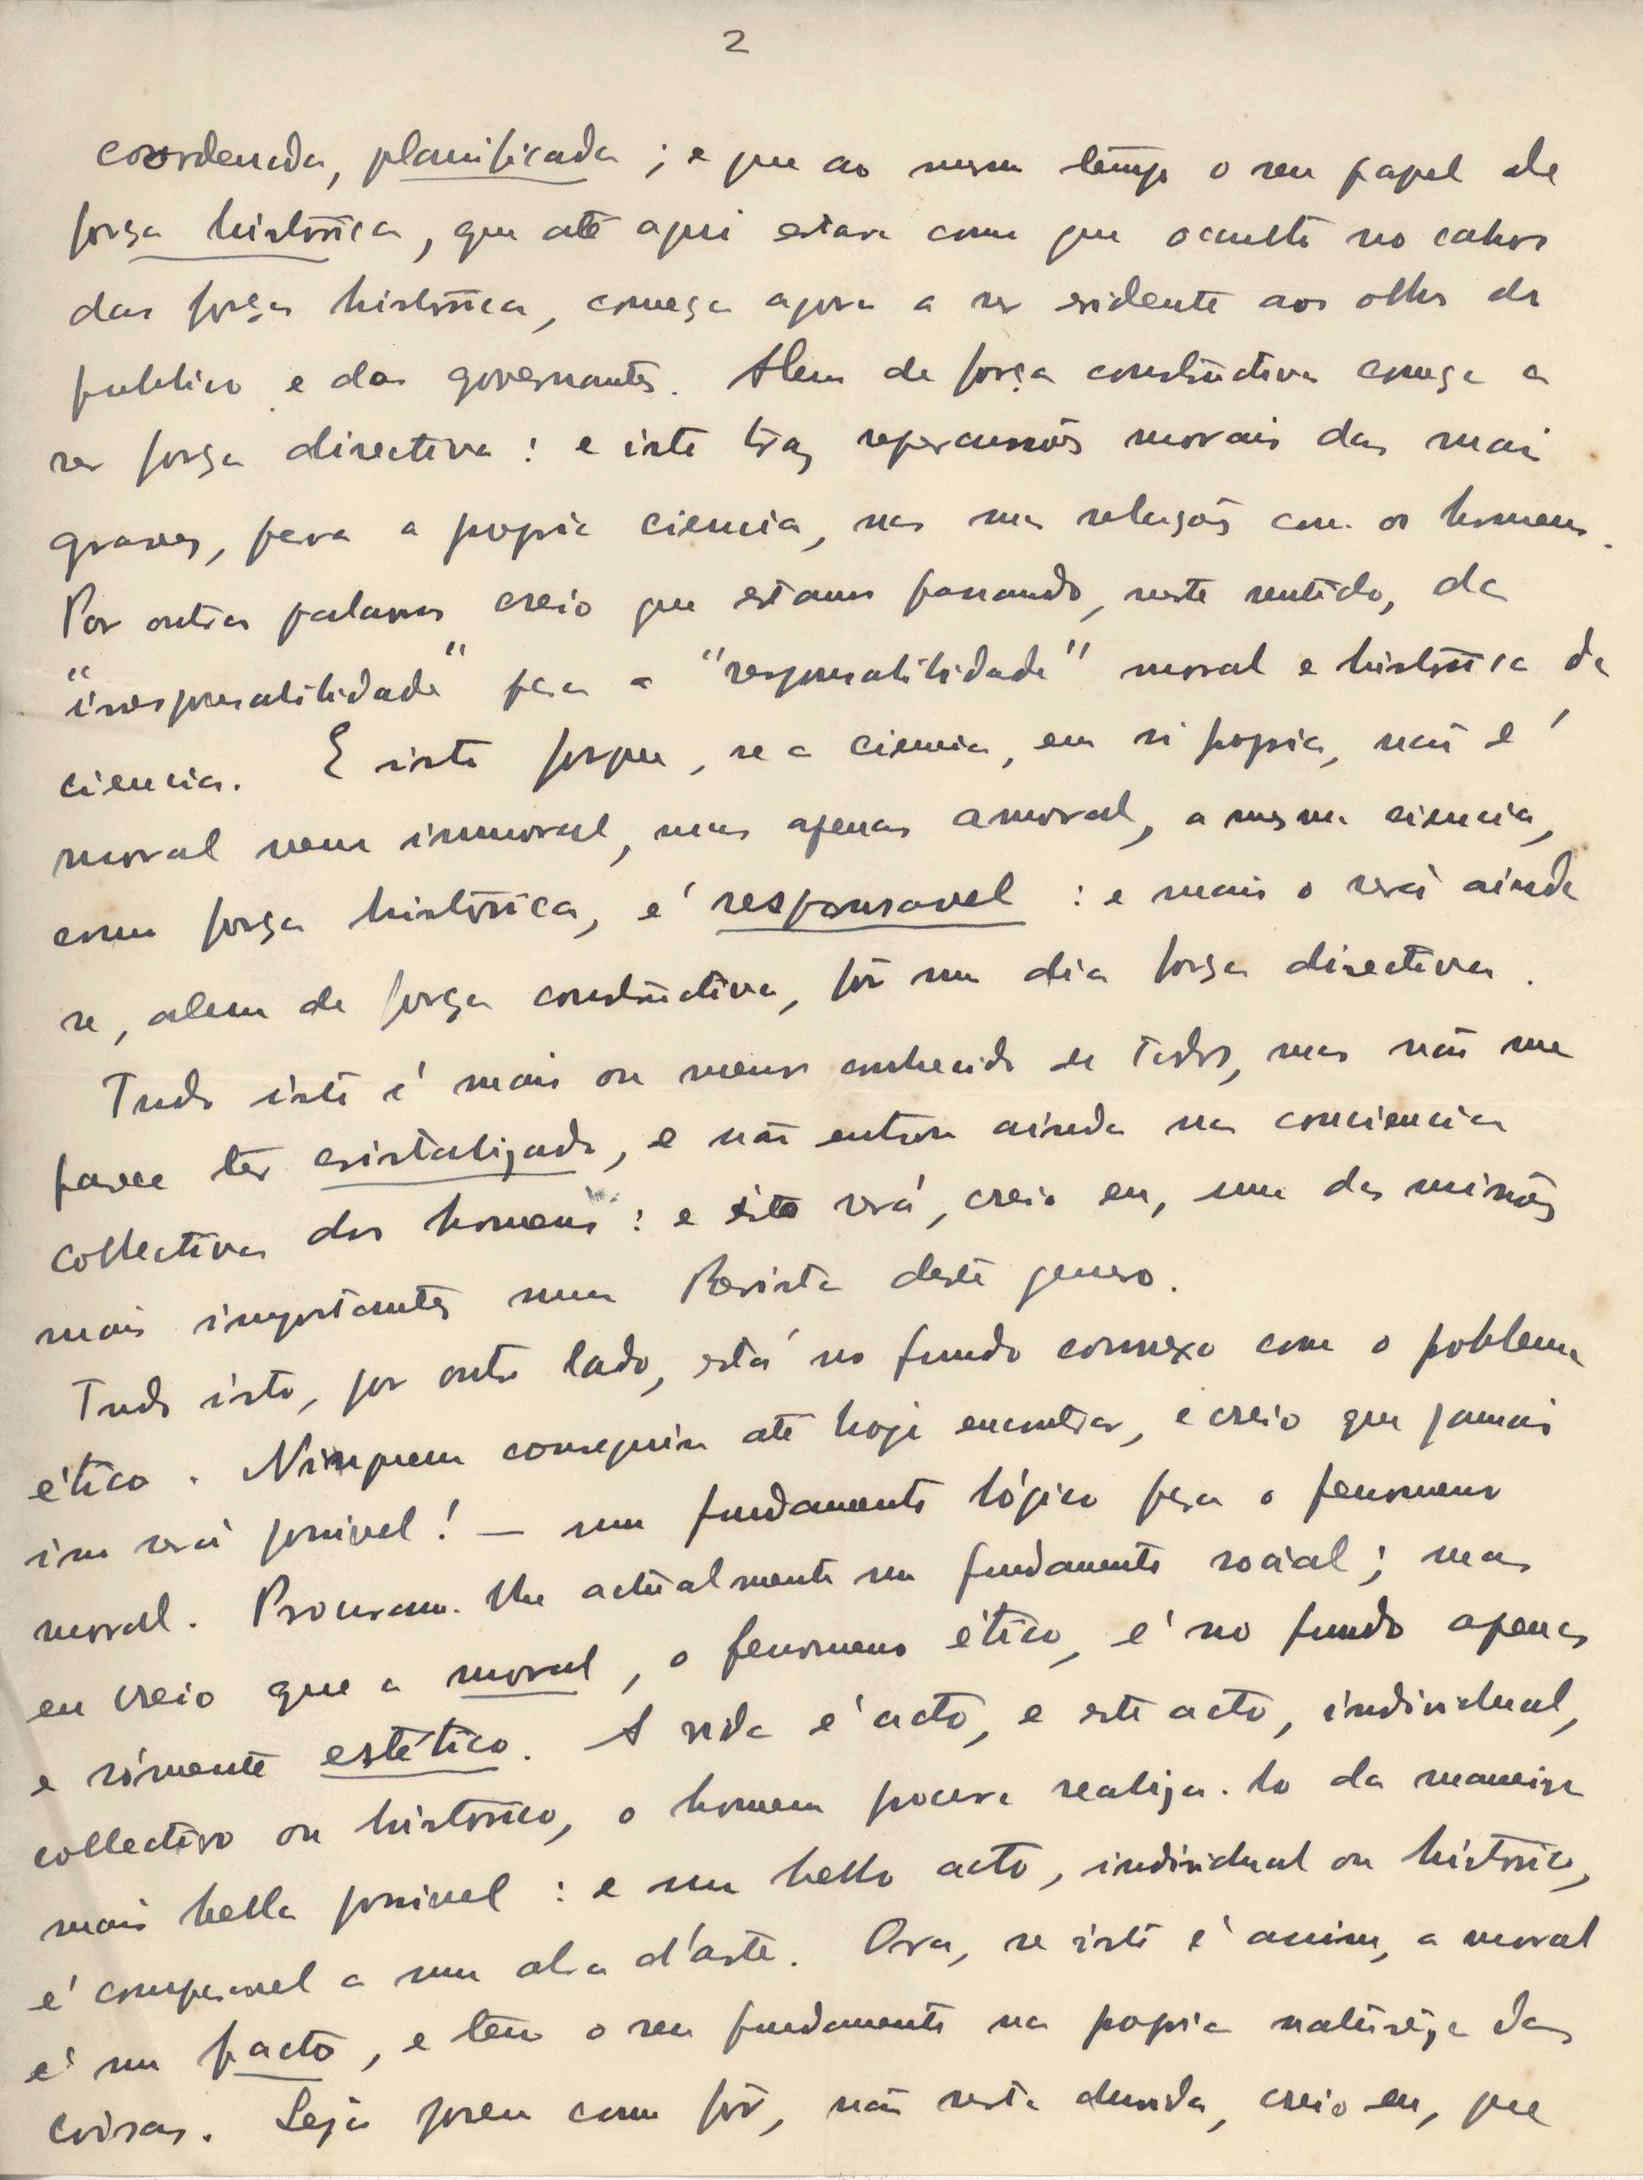 2
coordenada, planificada ; e que ao mesmo tempo o seu papel de
força historica, que até aqui estava como que occulta no cahos
das forças historicas, começa agora a ser evidente aos olhos do
publico e dos governantes. Alem de força constructiva começa a
ser força directiva : e isto traz repercussões morais das mais
graves, para a propria ciencia, nas suas relações com os homens.
Por outras palavras creio que estamos passando, neste sentido, da
"irresponsabilidade" para a "responsabilidade" moral e historica da
ciencia. E isto porque, se a ciencia, em si propria, não é
moral nem immoral, mas apenas amoral, a mesma ciencia,
como força historica, é responsavel : e mais o será ainda
se, alem de força constructiva, fôr um dia força directiva.
Tudo isto é mais ou menos conhecido de todos, mas não me
parece ter cristalizado, e não entrou ainda na conciencia
collectiva dos homens : e isto será, creio eu, uma das missões
mais importantes numa Revista deste genero.
Tudo isto, por outro lado, está no fundo connexo com o problema
ético. Ninguem conseguiu até hoje encontrar, e creio que jamais
isso será possivel! — um fundamento lógico para o fenomeno
moral. Procuram-lhe actualmente um fundamento social ; mas
eu creio que a moral, o fenomeno ético, é no fundo apenas
e sómente estético. A vida é acto, e este acto, individual,
collectivo ou historico, o homem procura realiza-lo da maneira
mais bella possivel : e um bello acto, individual ou historico,
é comparavel a uma obra d'arte. Ora, se isto é assim, a moral
é um facto, e tem o seu fundamento na propria natureza das
coisas. Seja porem como fôr, não resta duvida, creio eu, que